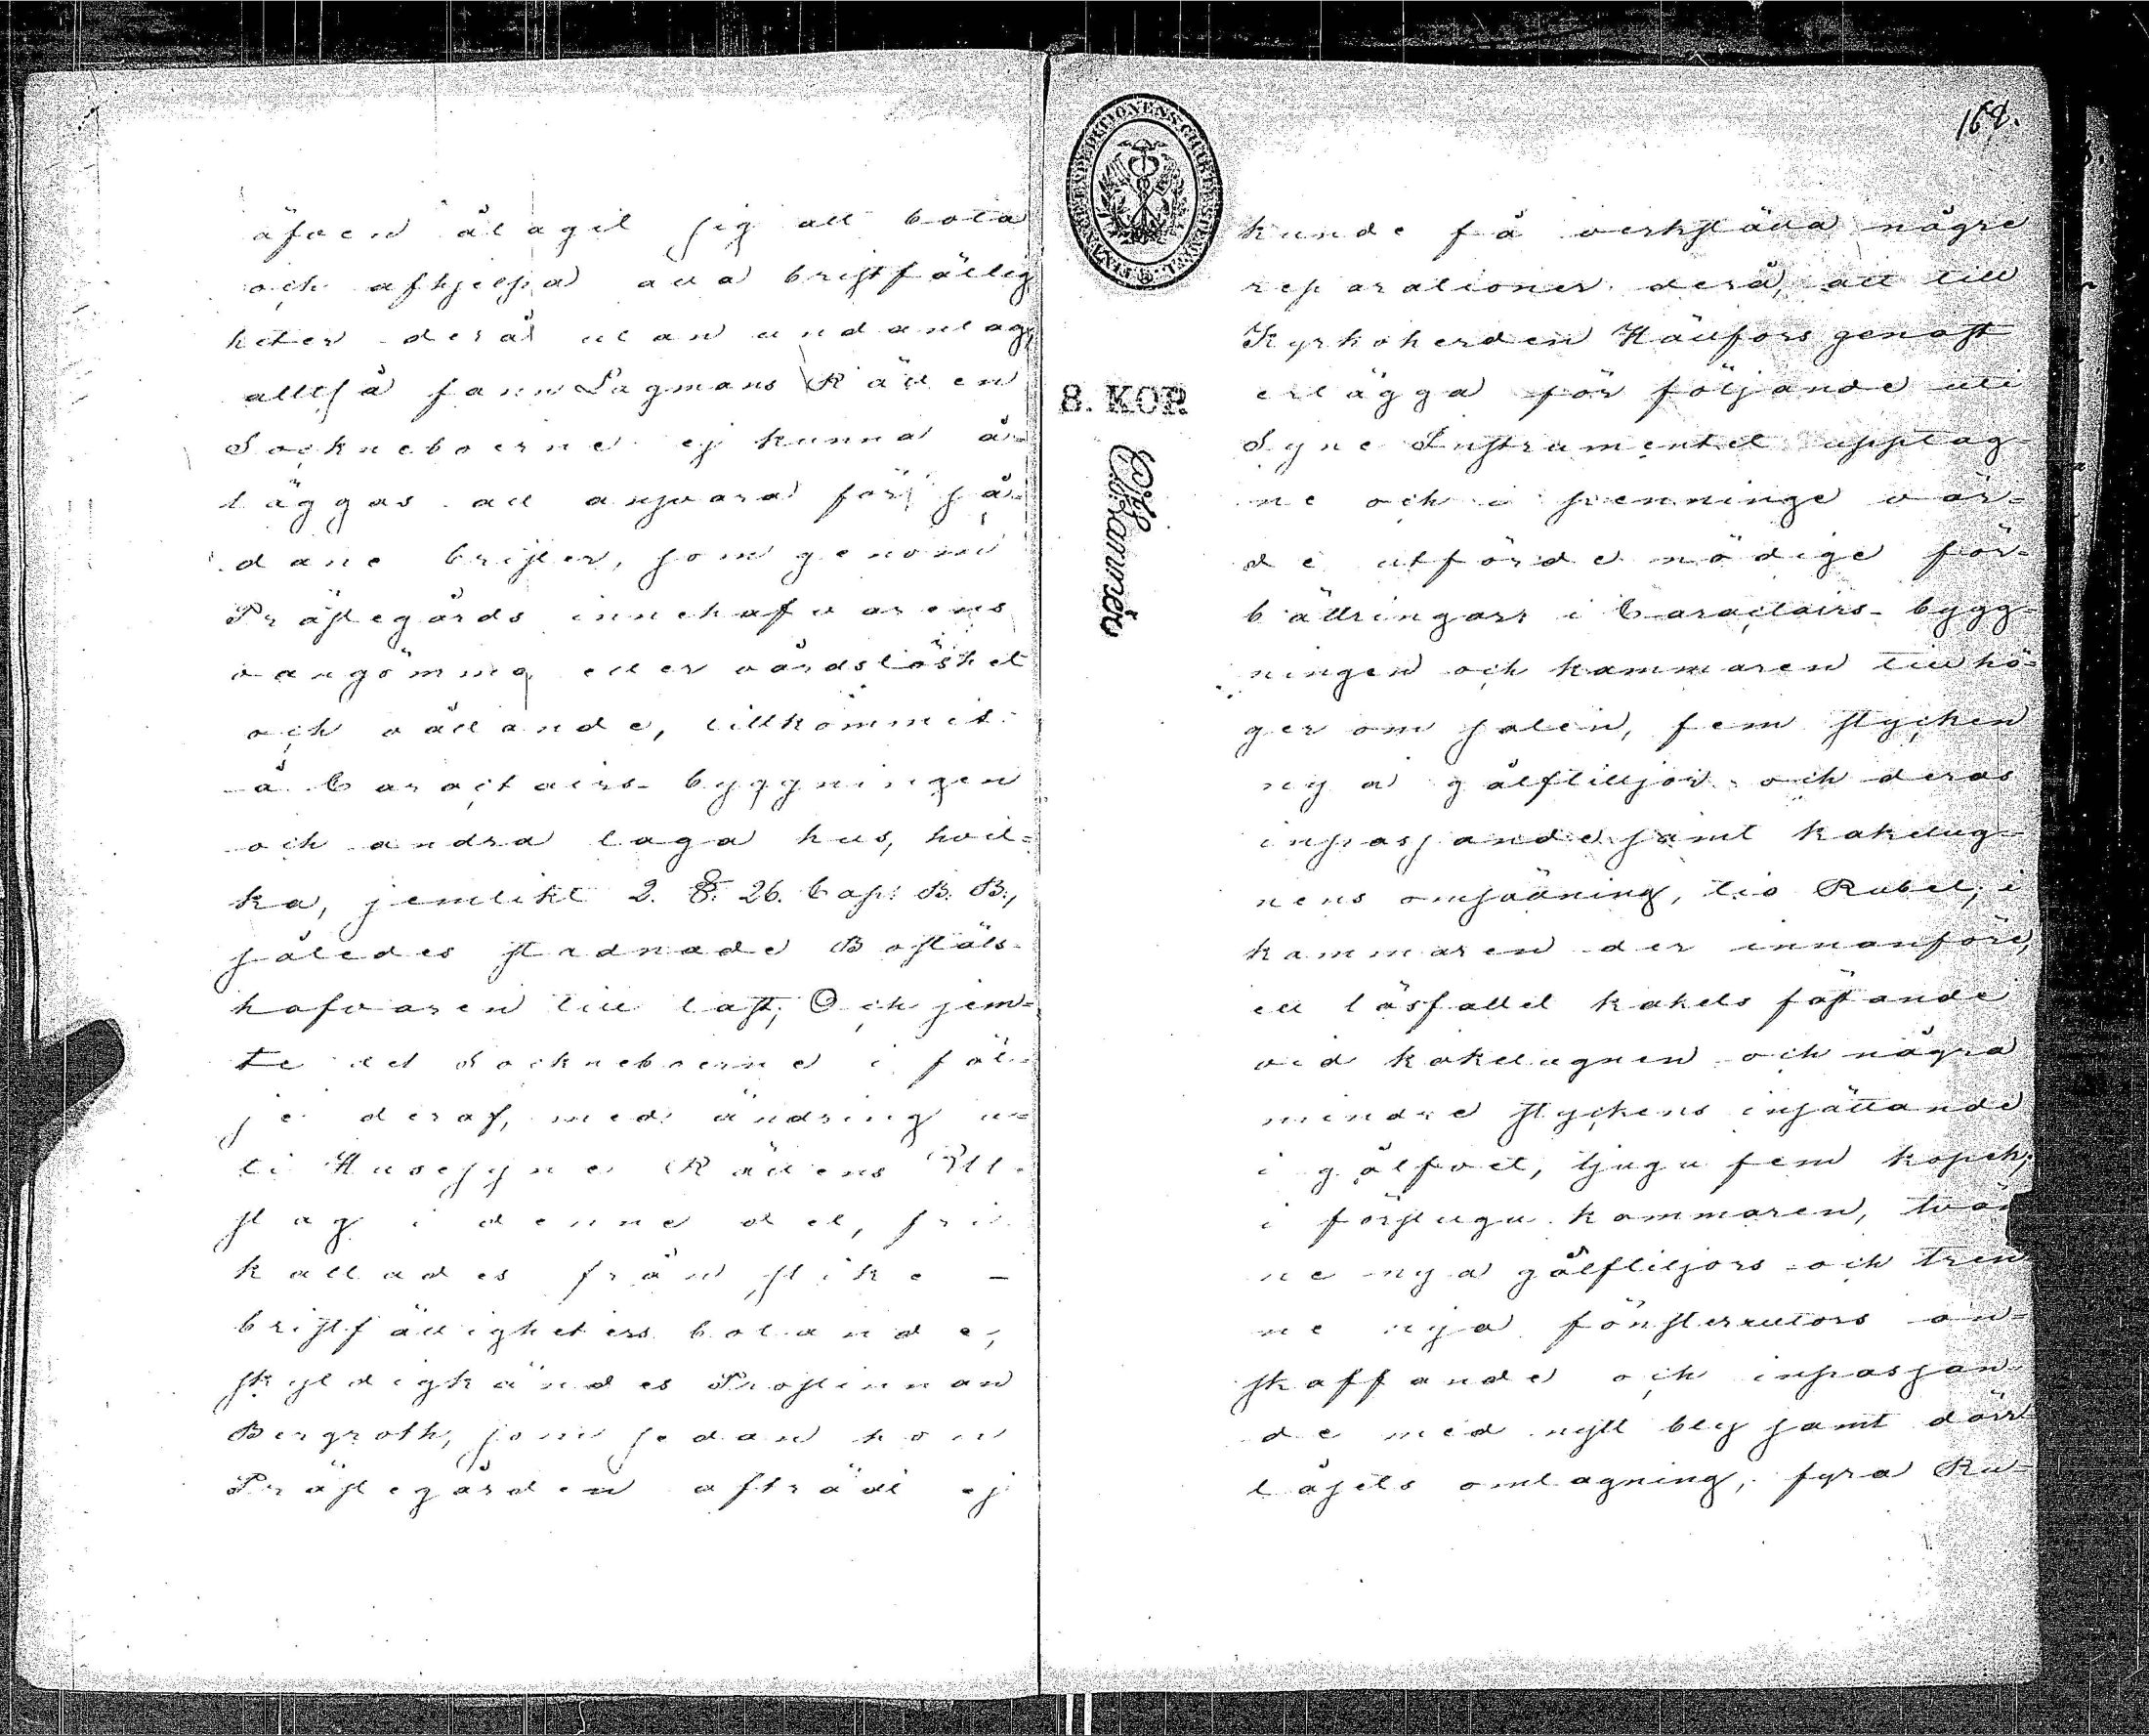 äfven ålagit sig att bota
och afhjelpa alla bristfällig
heter derå utan undantag,
alltså fann Lagmans Rätten
Sockneboerne ej kunna å-
läggas att ansvara för så-
dane brister, som genom
Prästegårds innehafvarens
vangömma eller vårdslöshet
och vållande, tillkommit
å Caractairs-byggningen
och andra laga hus, hvil-
ka, jemlikt 2. §. 26. Cap: B. B.,
således stadnade Boställs
hafvaren till last; Och jem-
te det Sockneboerne i föl-
je deraf, med ändring u-
ti Husesyns Rättens Ut-
slag i denne del, fri
kallades från slike -
bristfälligheters botande,
skyldigkändes Prostinnan
Bergroth, som sedan hon
Prästegården afträdt ej
168.
8. KOP.
kunde få verkställa någre
reparationer derå, att till
Kyrkoherden Hällfors genast
erlägga för följande uti
Syne Instrumentet upptag-
ne och i penninge vär-
de utförde nödige för-
bättringar: i Caractairs-bygg-
ningen och kammaren till hö-
ger om salen, fem stycken
nya gålftilljor och deras
inpassande samt kakelug-
nens omspåning, tio Rubel; i
kammaren der innanföre,
ett lösfallet kakels fästande
vid kakelugnen och några
mindre styckens insättande
i gålfvet, tjugu fem kopek;
i förstugu kammaren, tvän
ne nya gålftiljors och tren
ne nya fönsterrutors an-
skaffande och inpassan-
de med nytt bly samt dörr
låsets omlagning, fyra Ru-